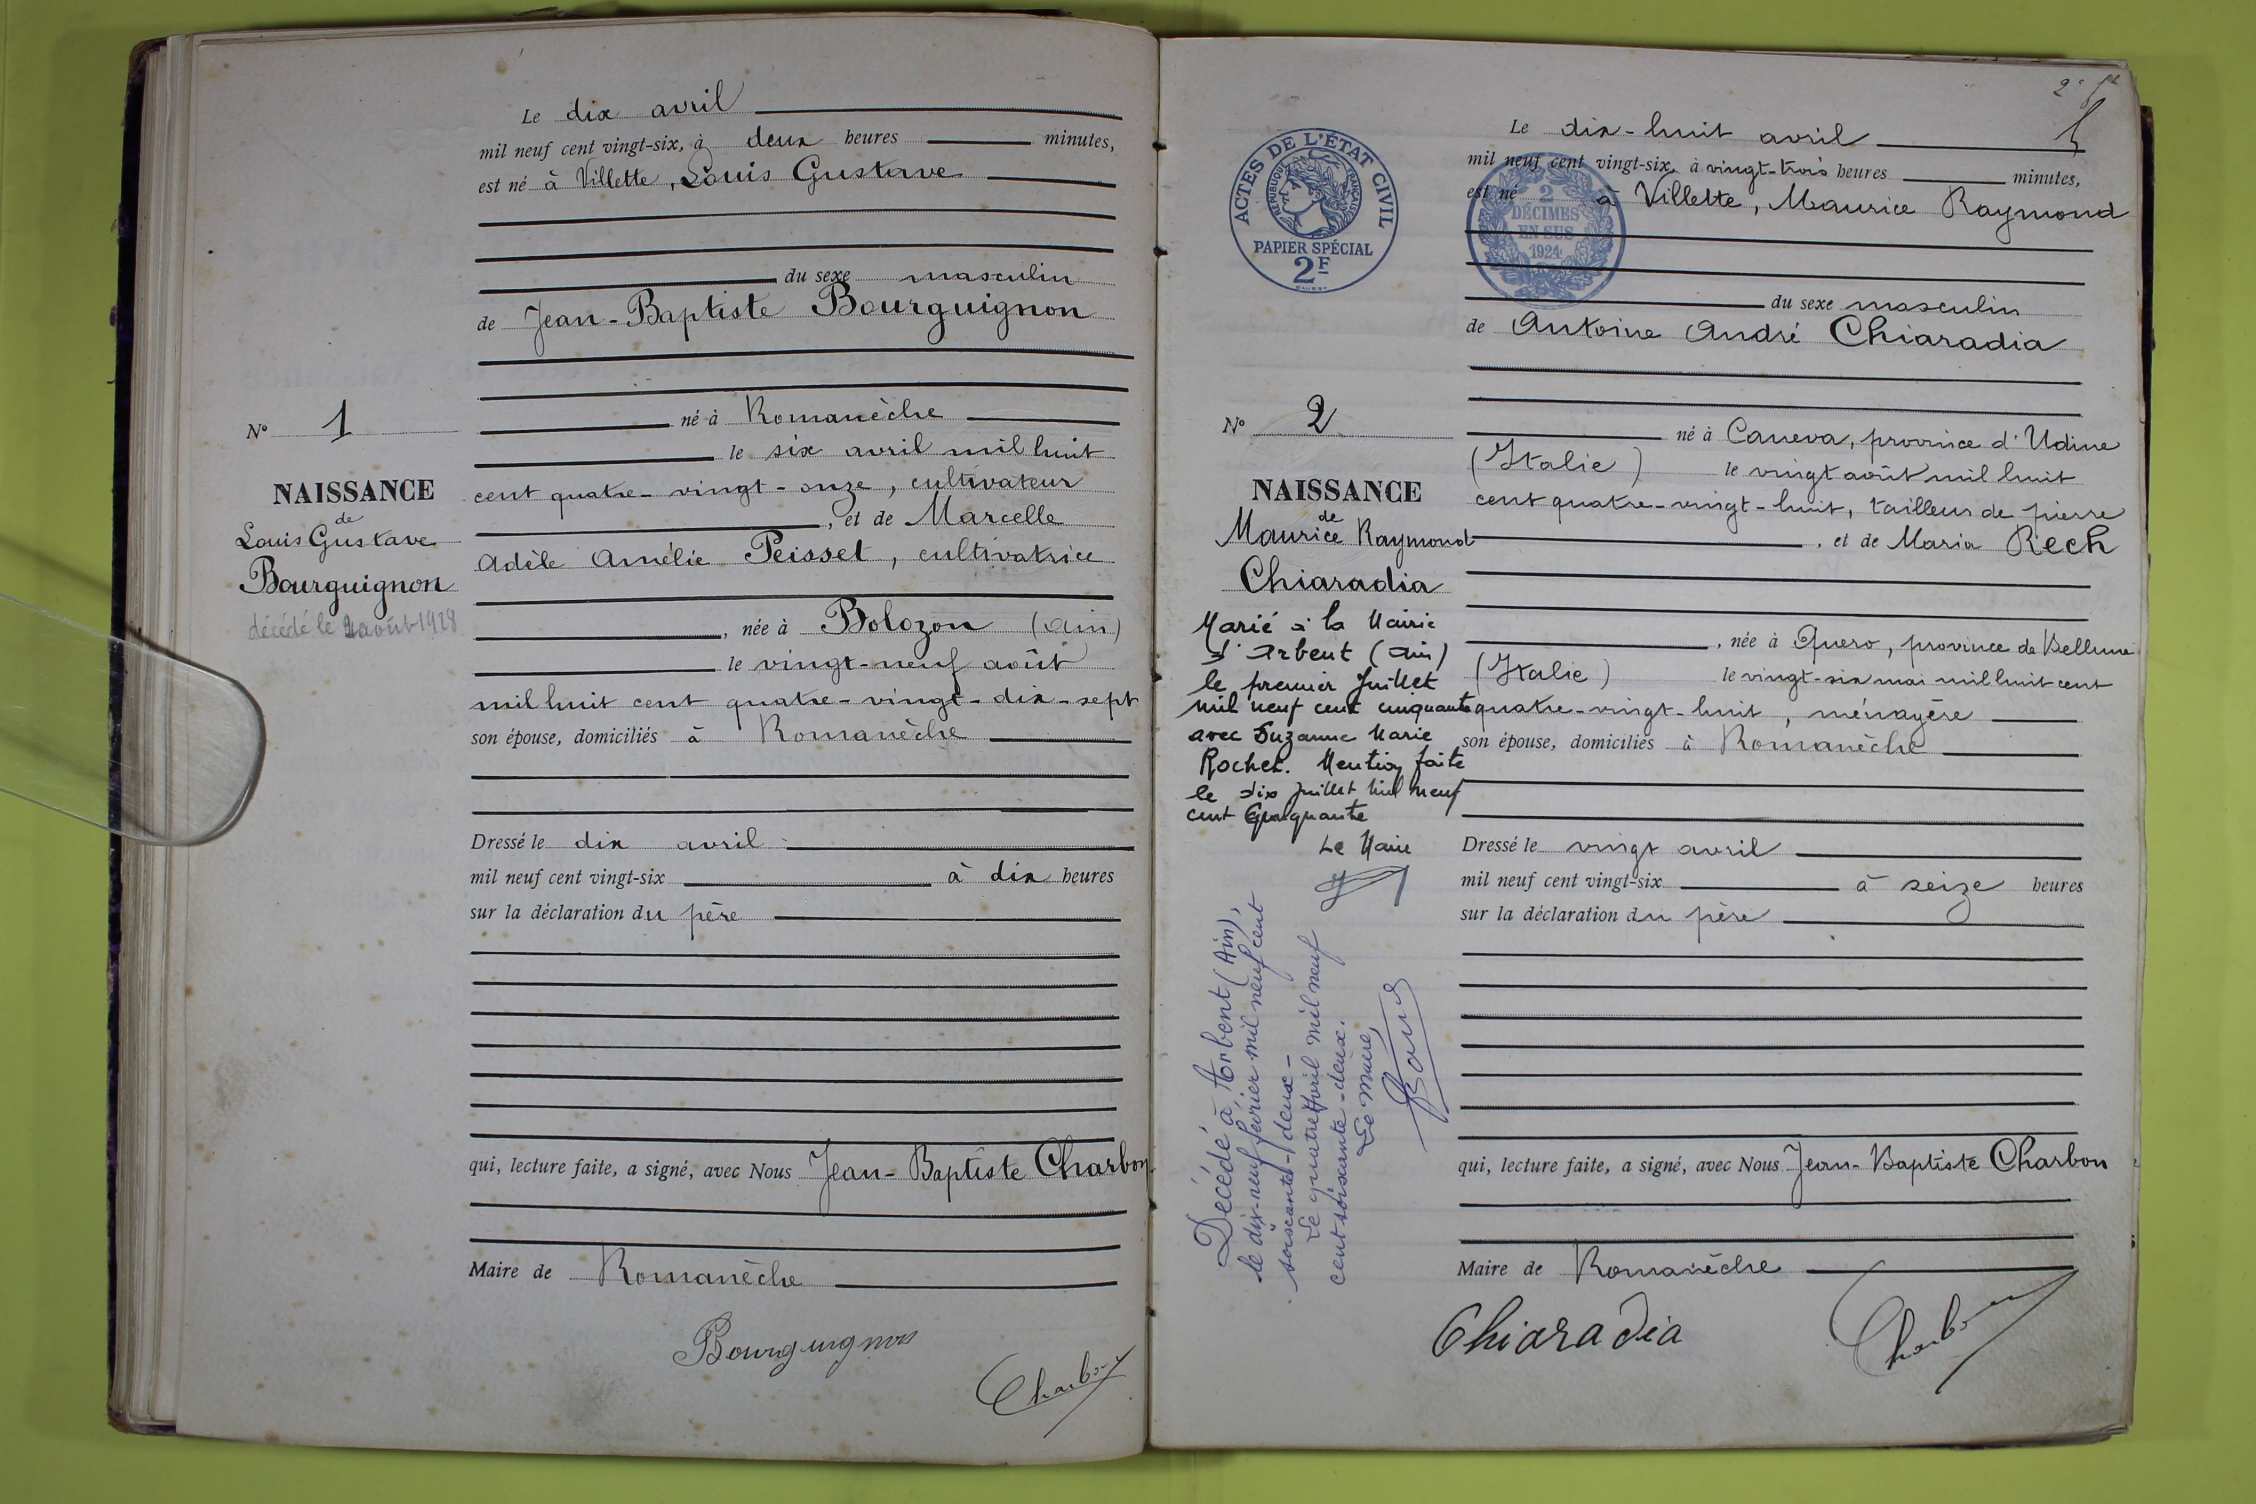 Le dix avril
mil neuf cent vingt-six, à deux heures minutes,
est né à Villette, Louis Gustave
du sexe masculin
de Jean-Baptiste Bourguignon
né à Romanèche
le six avril mil huit
cent quatre-vingt-onze, cultivateur
, et de Marcelle
Adèle Amélie Peisset, cultivatrice
, née à Bolozon (Ain)
le vingt-neuf août
mil huit cent quatre-vingt-dix-sept
son épouse, domiciliés à Romanèche
Dressé le dix avril
mil neuf cent vingt-six à dix heures
sur la déclaration du père
qui, lecture faite, a signé, avec Nous Jean-Baptiste Charbon
Maire de Romanèche
Bourguignon
Charbon
N° 1
NAISSANCE
de
Louis Gustave
Bourguignon
décédé le août 1928
2e ft
Le dix-huit avril
mil neuf cent vingt-six, à vingt-trois heures minutes,
est né à Villette, Maurice Raymond
du sexe masculin
de Antoine André Chiaradia
né à Caneva, province d'Udine
(Italie) le vingt août mil huit
cent quatre-vingt-huit, tailleur de pierre
, et de Maria Rech
, née à Quero, province de Bellune
(Italie) le vingt-six mai mil huit cent
quatre-vingt-huit, ménagère
son épouse, domiciliés à Romanèche
Dressé le vingt avril
mil neuf cent vingt-six à seize heures
sur la déclaration du père
qui, lecture faite, a signé, avec Nous Jean-Baptiste Charbon
Maire de Romanèche
Chiaradia
Charbon
ACTES DE L'ÉTAT CIVIL
RÉPUBLIQUE FRANÇAISE
PAPIER SPÉCIAL
2F
2
DÉCIMES
EN SUS
1924
N° 2
NAISSANCE
de
Maurice Raymond
Chiaradia
Marié à la Mairie
d'Arbent (Ain)
le premier Juillet
mil neuf cent cinquante
avec Suzanne Marie
Rochet. Mention faite
le dix Juillet mil neuf
cent cinquante
Le Maire
Décédé à Arbent (Ain),
le dix-neuf février mil neuf cent
soixante-deux-
Le quatre Avril mil neuf
cent soixante-deux.
Le Maire,